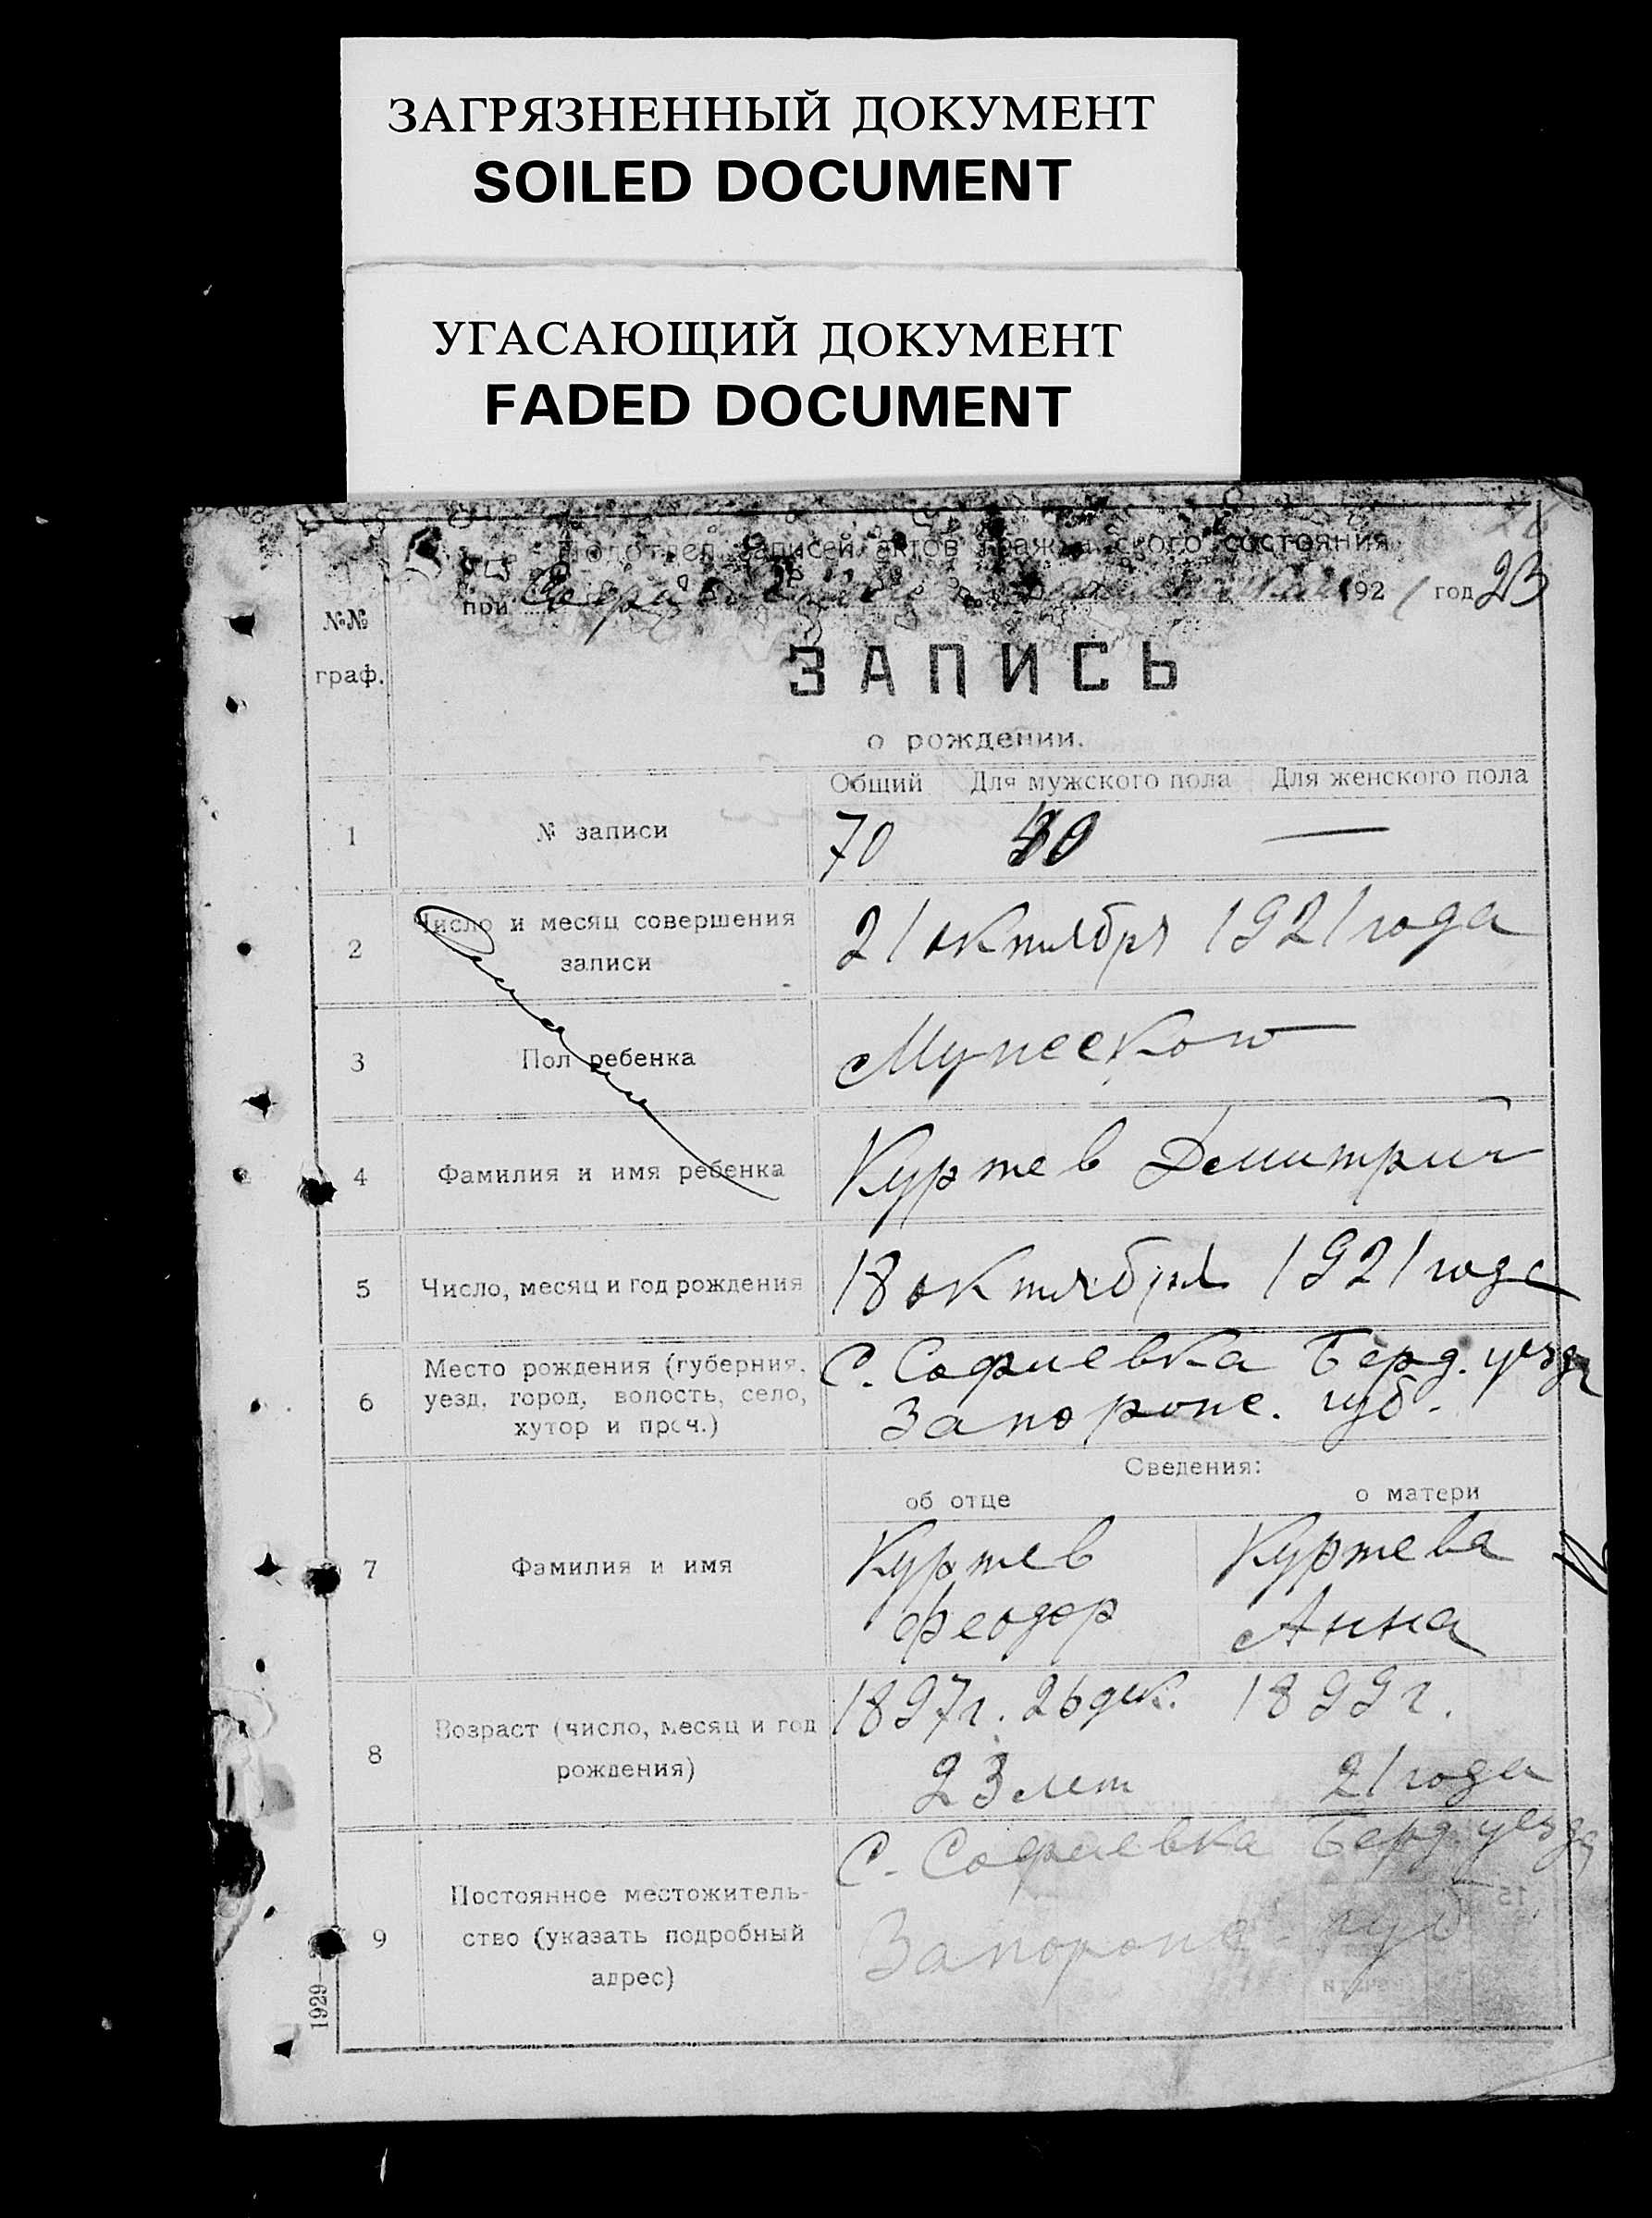 ЗАГРЯЗНЕННЫЙ ДОКУМЕНТ
SOILED DOCUMENT
УГАСАЮЩИЙ ДОКУМЕНТ
FADED DOCUMENT
26
Подотдел записей актов гражданского состояния
при 1921 год 23
№№
граф.
ЗАПИСЬ
о рождении.
Общий Для мужского пола Для женского пола
1 № записи 70 —
2 Число и месяц совершения
записи
21 октября 1921 года
3 Пол ребенка Мужеского
4 Фамилия и имя ребенка Куртев Димитрий
5 Число, месяц и год рождения 18 октября 1921 года
6 Место рождения (губерния,
уезд, город, волость, село,
хутор и проч.)
С. Софиевка Берд. уезда
Запорож. губ.
Сведения:
об отце о матери
7 Фамилия и имя
Куртев Куртева
Феодор Анна
8 Возраст (число, месяц и год
рождения)
1897 г. 26 дек. 1899 г.
23 лет 21 года
9 Постоянное местожитель-
ство (указать подробный
адрес)
С. Софиевка Берд. уезда
Запорож. губ
1929